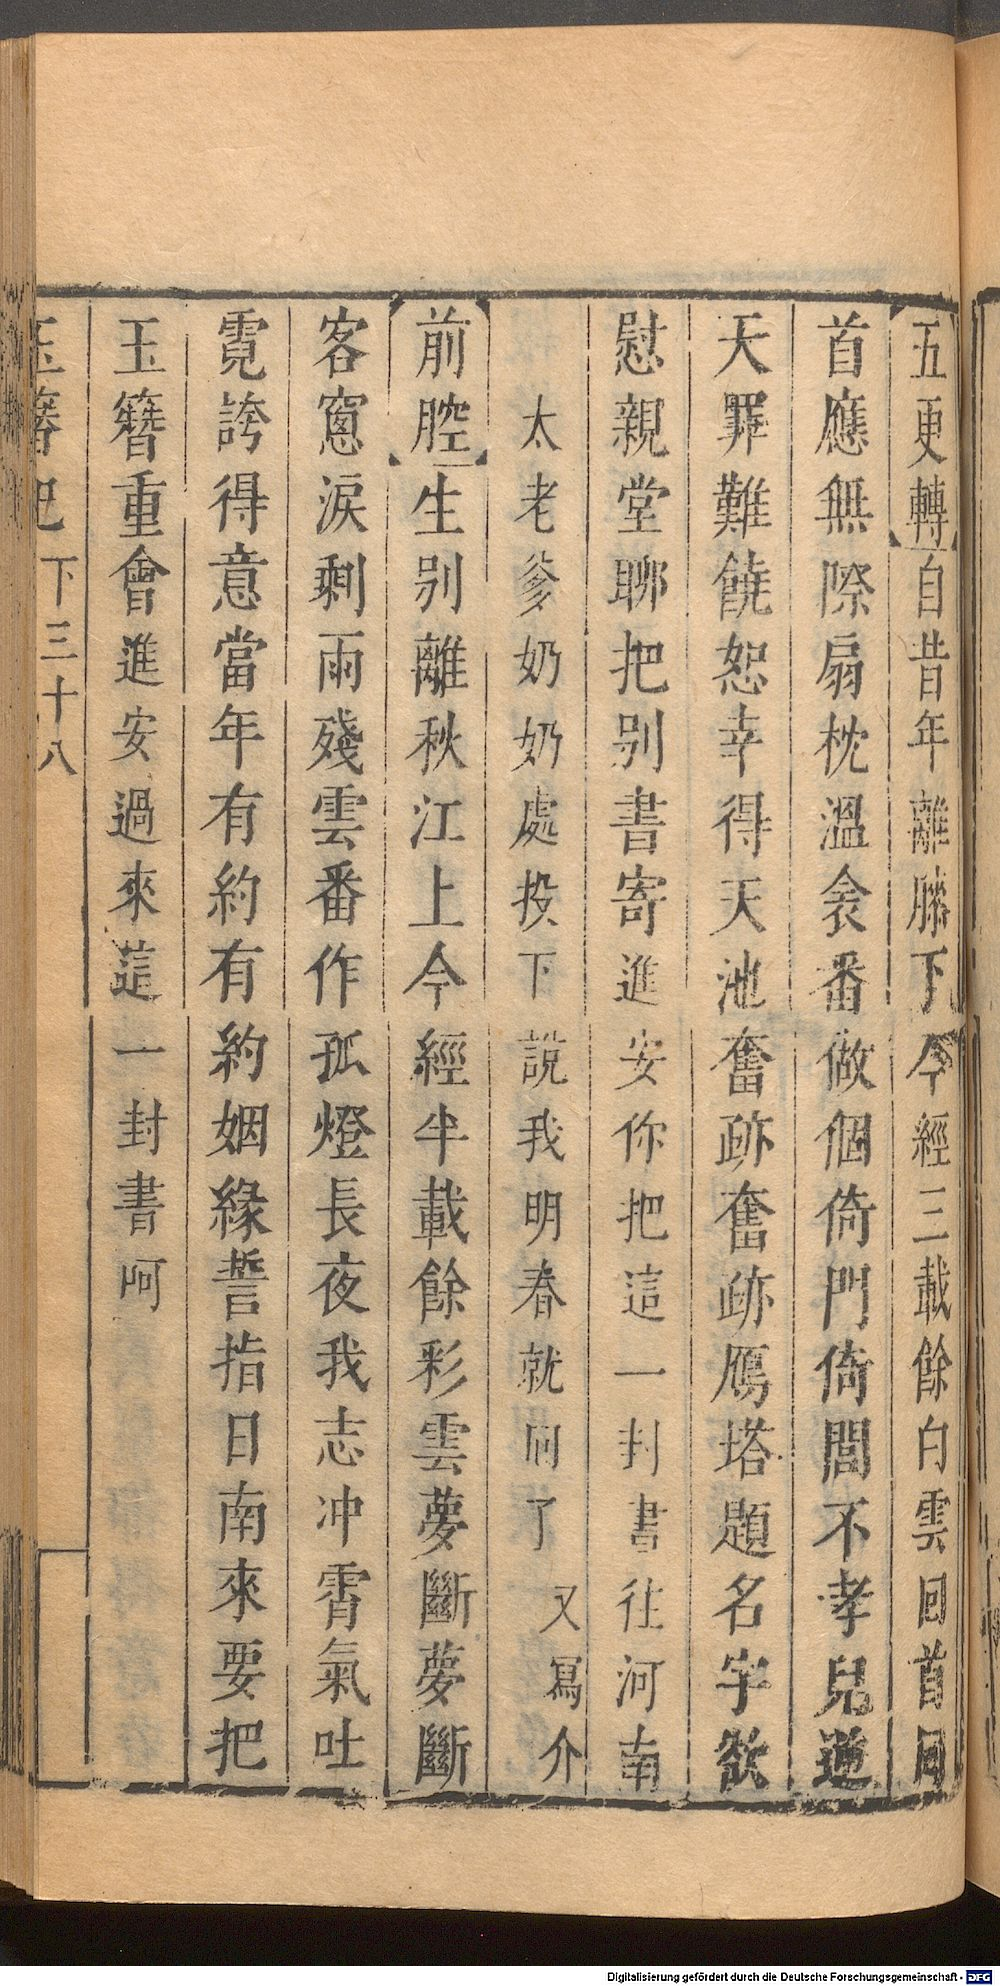 五更轉自昔年離膝下今經三載餘白雲回首回
首應無際扇枕溫衾番做個倚門倚閭不孝兒逆
天罪難饒恕幸得天池奮跡奮跡鴈塔題名字欲
慰親堂聊把別書寄進安你把這一封書往河南
太老爹奶奶處投下說我明春就同了又寫介
前腔生別離秋江上今經半載餘彩雲夢斷夢斷
客窻淚剩雨殘雲番作孤燈長夜我志冲霄氣吐
霓誇得意當年有約有約姻緣誓指日南來要把
玉簪重會進安過來這一封書呵
玉簪記 下 三十八
Digitalisierung gefördert durch die Deutsche Forschungsgemeinschaft - DFG